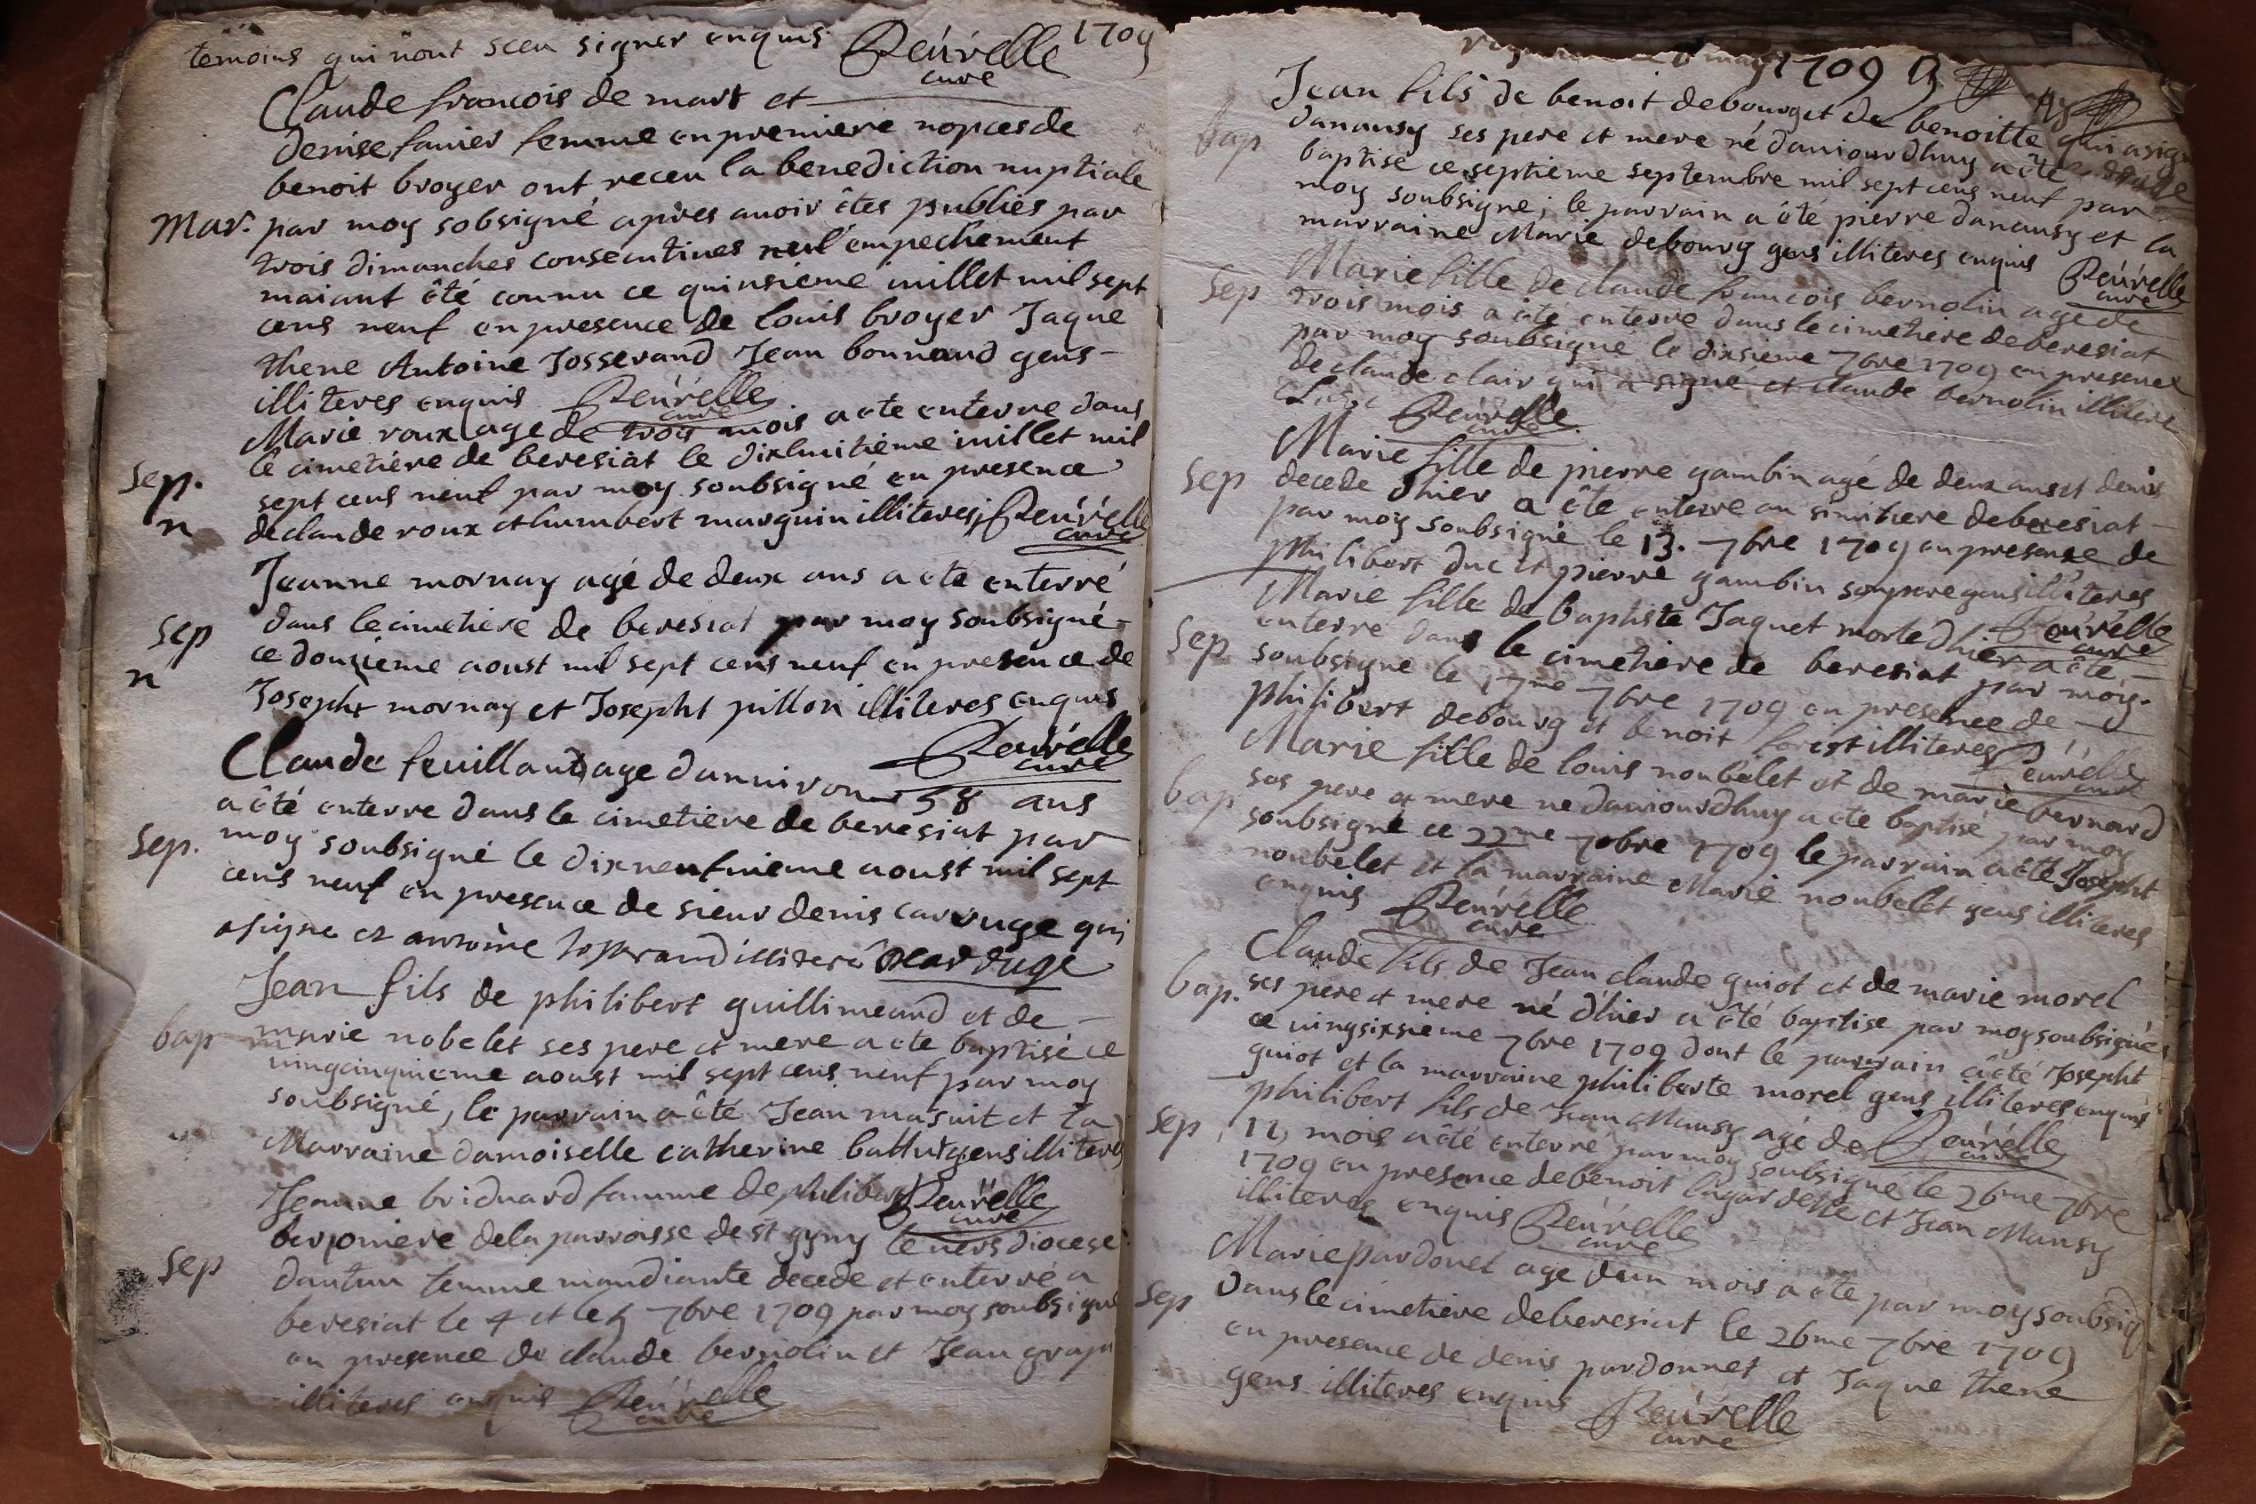 temoins qui nont sceu signer enquis Reúrelle 1709
cure
Claude francois de mart et
denise favier femme en premiere nopces de
benoit broyer ont receu la benediction nuptiale
Mar. par moy sobsigné apres avoir êtes publiés par
trois dimanches consecutives nul empechement
maiant êté connu ce quinsieme iuillet mil sept
cens neuf en presence de louis broyer Jaque
thene Antoine Josserand Jean bonnaud gens
illiteres enquis Reúrelle
cure
Marie roux age de trois mois a ete enterre dans
le cimetiére de beresiat le dixhuitiéme iuillet mil
sep. sept cens neuf par moy soubsigné en presence
n de claude roux et humbert marguin illiteres Reúrelle
cure
Jeanne mornay agé de deux ans a ete enterré
sep dans le cimetiere de beresiat par moy soubsigné
n ce douzieme aoust mil sept cens neuf en presence de
Josepht mornay et Josepht pillon illiteres enquis
Reúrelle
cure
Claude feuilland age danviron 58 ans
a êté enterre dans le cimetiere de beresiat par
sep. moy soubsigné le dixneufvieme aoust mil sept
cens neuf en presence de sieur denis carruge qui
a signe et antoine Josserand illitere Dcarruge
Jean fils de philibert guillimeaud et de
bap marie nobelet ses pere et mere a ete baptisé ce
vingcinquieme aoust mil sept cens neuf par moy
soubsigné, le parrain a êté Jean masuit et la
Marraine damoiselle catherine battut gens illiteres
Jeanne bridnard famme de philibert Reúrelle
cure
berjoniere de la parroisse de st gyny le vers diocese
sep dautun femme mandiante decede et enterré a
beresiat le 4 et le 5 7bre 1709 par moy soubsigné
en presence de claude bernolin et Jean
illiteres enquis Reúrelle
cure
1709
Jean fils de benoit debourg et de benoitte
bap danansy ses pere et mere né daujourdhuy a êté
baptisé ce septieme septembre mil sept cens neuf par
moy soubsigné; le parrain a êté pierre danansy et la
marraine Marie debourg gens illiteres enquis Reúrelle
cure
Sep Marie fille de claude francois bernolin age de
trois mois a êté enterre dans le cimetiere de beresiat
par moy soubsigne le dixsieme 7bre 1709 en presence
de claude clair qui a signé et claude bernolin illitere
Reúrelle
cure
Marie fille de pierre gambin agé de deux ans et demis
sep decede dhier a êté enterre au simitiere de beresiat
par moy soubsigné le 13. 7bre 1709 en presence de
philibert duc et pierre gambin son pere gens illiteres
Reúrelle
cure
Marie fille de baptiste Jaquet morte dhier a êté
sep enterré dans le cimetiere de beresiat par moy
soubsigne le 17me 7bre 1709 en presence de
philibert debourg et benoit forest illiteres Reúrelle
cure
Marie fille de louis noubelet et de marie bernard
bap ses pere et mere ne daujourdhuy a ete baptisé par moy
soubsigné ce 22me 7bre 1709 le parrain a êté Josepht
noubelet et la marraine Marie noubelet gens illiteres
enquis Reúrelle
cure
Claude fils de Jean claude guiot et de marie morel
bap. ses pere et mere né d'hier a êté baptise par moy soubsigné
ce vingsixsieme 7bre 1709 dont le parrain a êté Josepht
guiot et la marraine philiberte morel gens illiteres enquis
Reúrelle
cure
philibert fils de Jean Mansy agé de
sep 11 mois a êté enterré par moy soubsigné le 26me 7bre
1709 en presence de benoit lagardette et Jean Mansy
illiteres enquis Reúrelle
cure
Marie pardonet age dun mois a ete par moy soubsig
sep dans le cimetiére de beresiat le 26me 7bre 1709
en presence de denis pardonnet et Jaque thene
gens illiteres enquis Reúrelle
cure